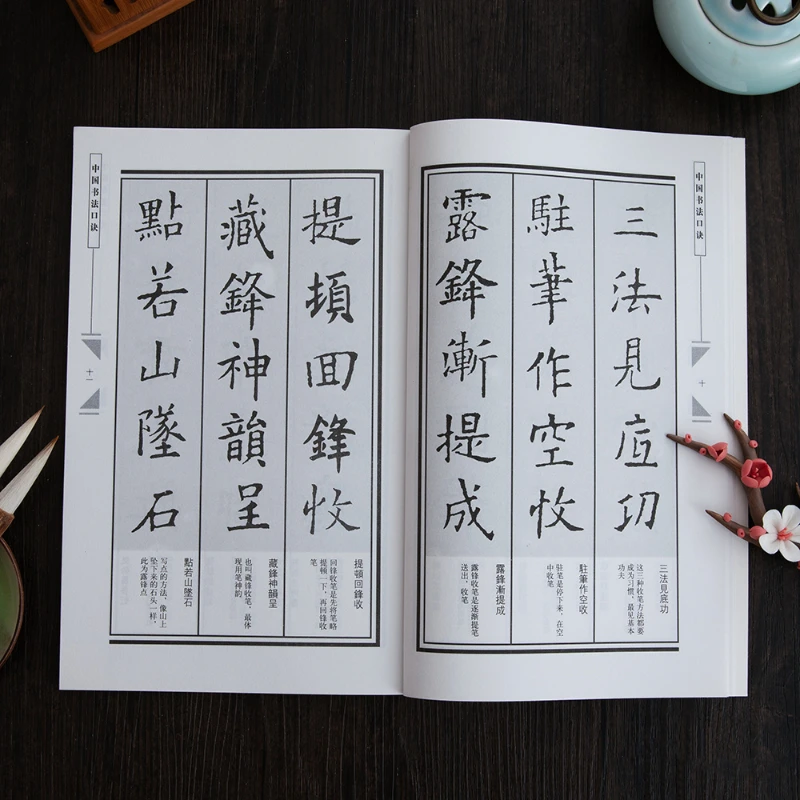 中国书法口诀
十
三法見底功
駐筆作空收
露鋒漸提成
三法見底功
这三种收笔方法都要
成为习惯，最见基本
功夫
駐筆作空收
驻笔是停下来，在空
中收笔
露鋒漸提成
露锋收笔是逐渐提笔
送出，收笔
提頓回鋒收
藏鋒神韻呈
點若山墜石
提頓回鋒收
回锋收笔是先将笔略
提顿一下，再回锋收
笔
藏鋒神韻呈
也叫藏锋收笔，最体
现用笔神韵
點若山墜石
写点的方法，像山上
坠下来的石头一样，
此为露锋点
中国书法口诀
十一